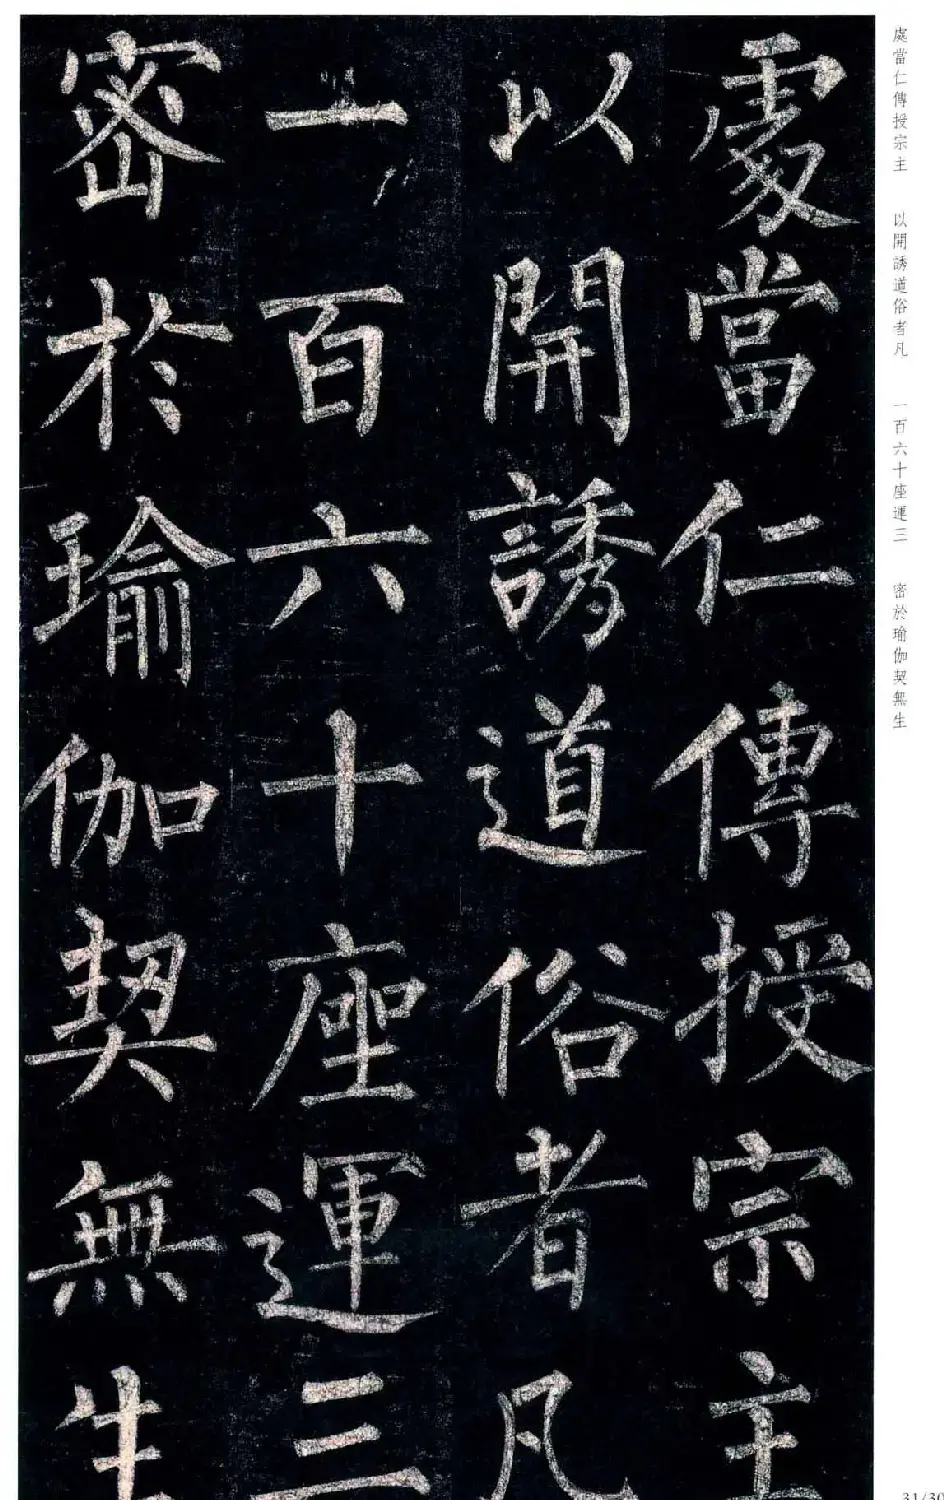 處當仁傳授宗主
以開誘道俗者凡
一百六十座運三
密於瑜伽契無生
處當仁傳授宗主 以開誘道俗者凡 一百六十座運三 密於瑜伽契無生
31/30